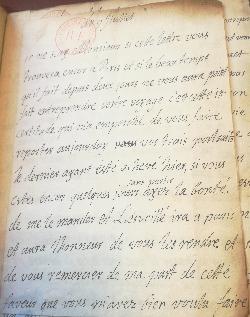 je ne scay Monsieur si cette lettre vous
trouvera encor a Paris et si le beau temps
qu'il fait depuis deux jours ne vous aura point
fait entreprendre votre voyage c'est cette in
certitude qui m'a empesché de vous faire
reporter aujourdhuy vos trois portraits
le dernier ayant esté achevé hier, si vous
estes encor quelques jours ayez la bonté
de me le mander et Lenville ira a point
et aura l'honneur de vous les rendre et
de vous remercier de ma part de cette
faveur que vous m'avez bien voulu faire